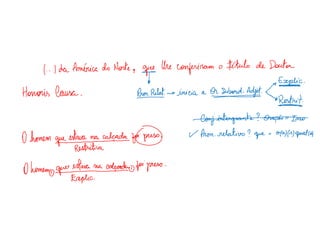 (...) da América do Norte, que lhe conferiram o título de Doutor
Honoris Causa.
Pron. Relat. → inicia a Or. Subord. Adjet.
Explic.
Restrit.
Conj. integrante?
✓ Pron. relativo? que = o(a)(s) qual(is)
O homem que estava na calçada foi preso.
Restritiva
O homem, que estava na calçada, foi preso.
Explic.